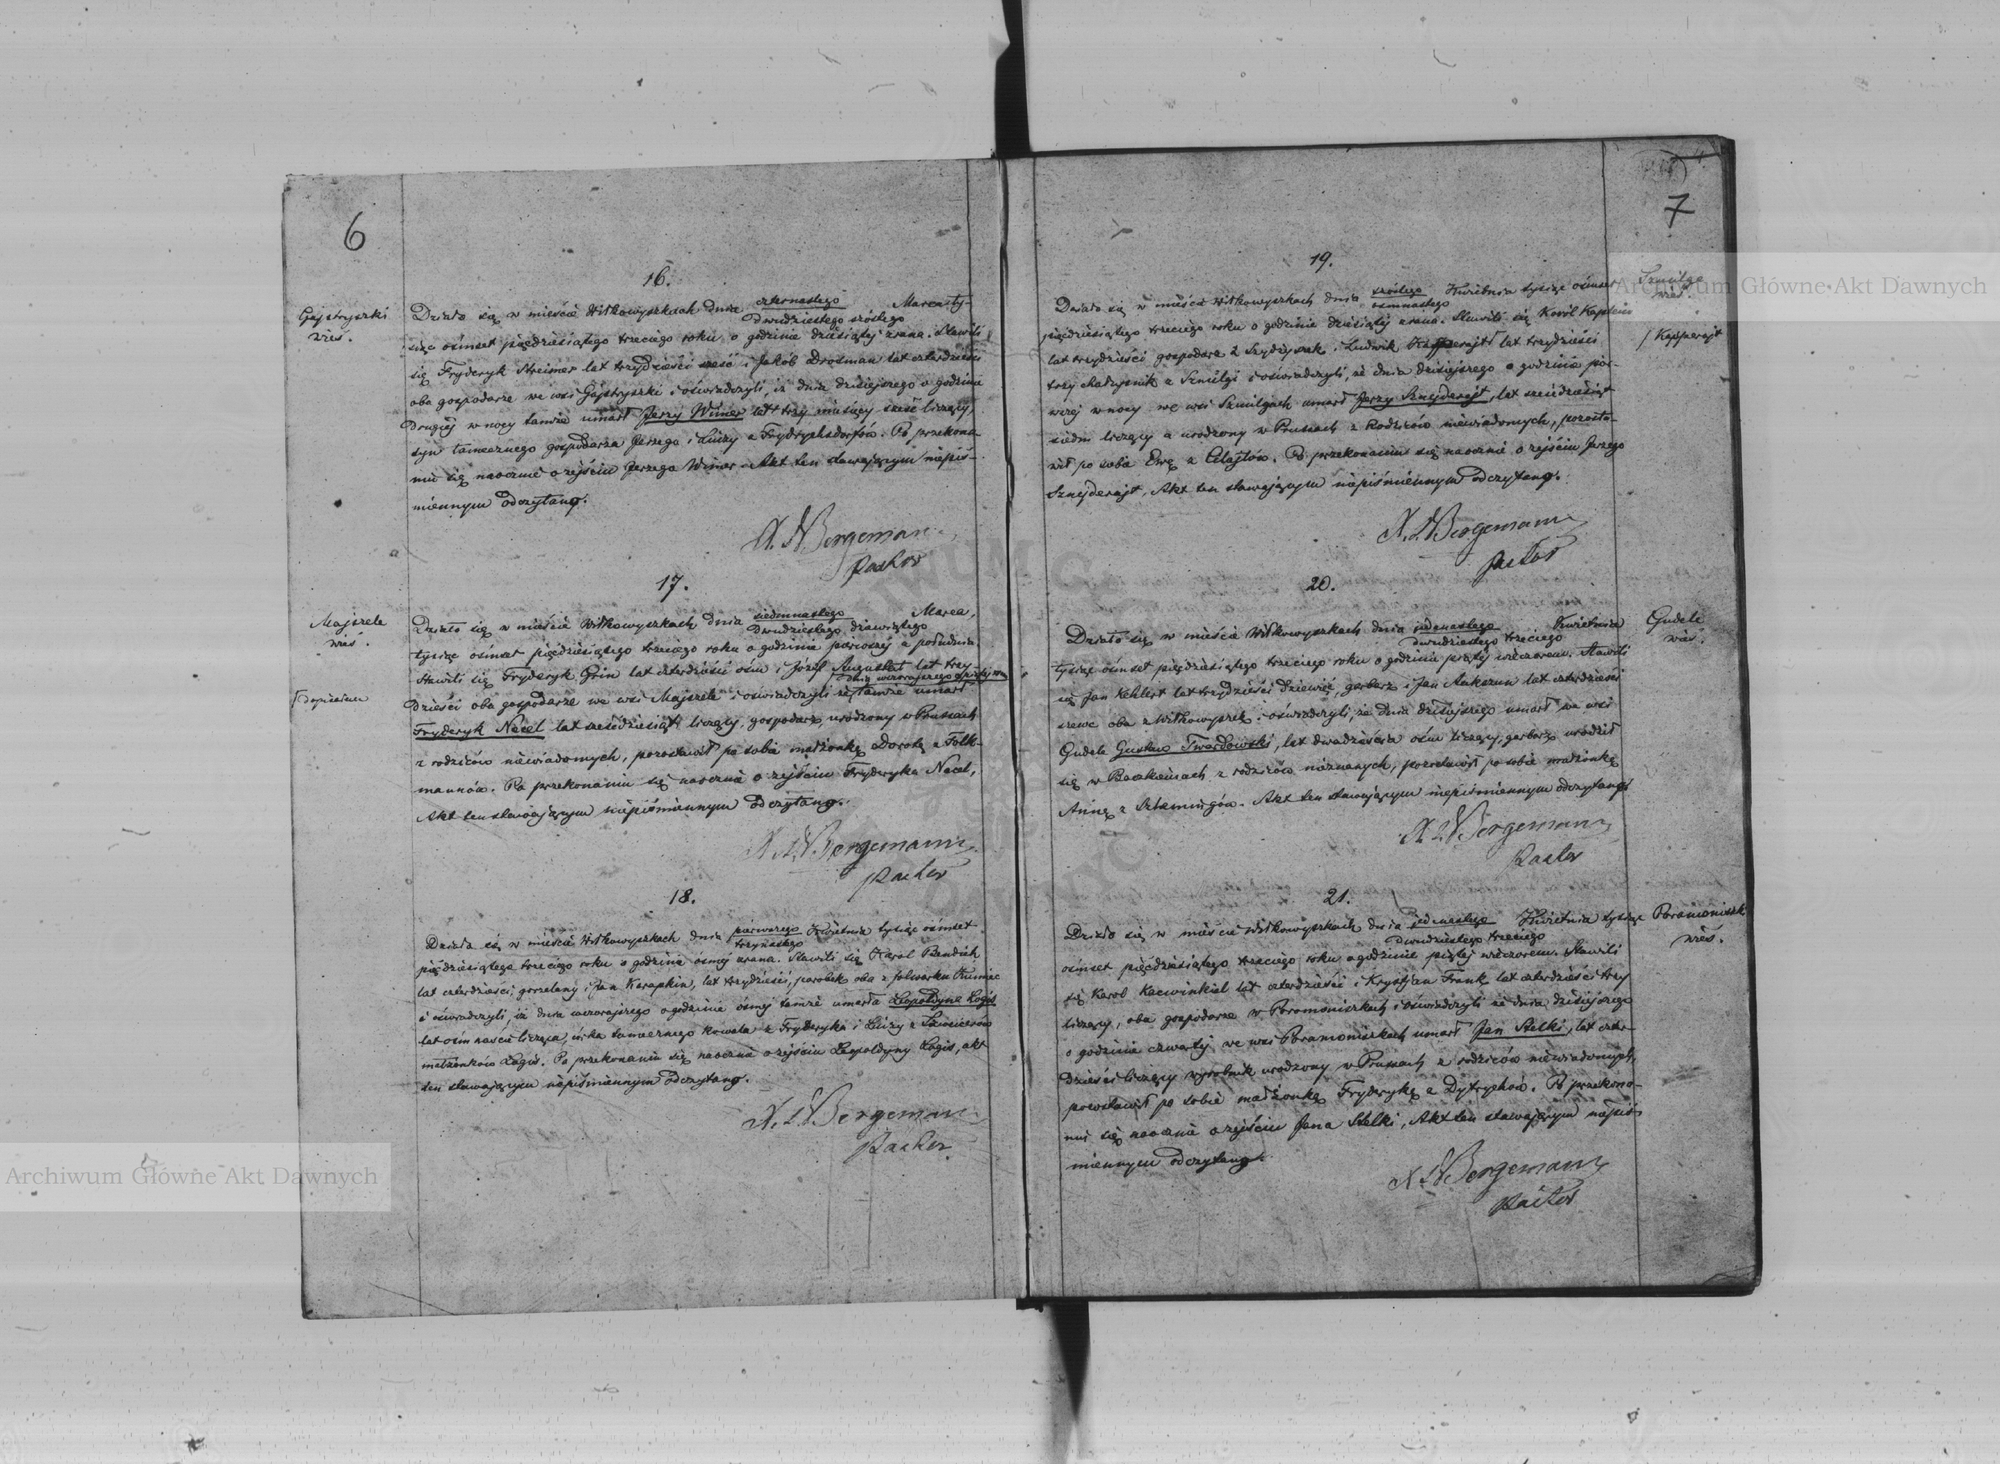 6
16.
Gajstryszki
wieś.
Działo się w mieście Wiłkowyszkach dnia czternastego Marca ty-
Dwudziestego szóstego
siąc ośmset pięćdziesiątego trzeciego roku o godzinie dziesiątej zrana. Stawili
się Fryderyk Steimer lat trzydzieści sześć i Jakób Drosman lat czterdzieści
oba gospodarze we wsi Gajstryszki i oświadczyli, iż dnia dzisiejszego o godzinie
Drugiej w nocy tamże umarł Jerzy Wimer lat trzy miesięcy sześć liczący,
syn tamecznego gospodarza Jerzego i Luizy z Frydrychsdorfów. Po przekona-
niu się naocznie o zejściu Jerzego Wimer Akt ten stawającym niepiś-
miennym odczytano.
Bergemann
Pastor
17.
Majszele
wieś.
Działo się w mieście Wiłkowyszkach dnia siedmnastego Marca,
Dwudziestego dziewiątego
tysiąc ośmset pięćdziesiątego trzeciego roku o godzinie pierwszej z południa.
Stawili się Fryderyk Grin lat czterdzieści ośm i Józef Augustat lat trzy-
dnia wczorajszego
dzieści oba gospodarze we wsi Majszele i oświadczyli iż tamże umarł
Fryderyk Necel lat sześćdziesiąt liczący, gospodarz, urodzony w Prusach
z rodziców niewiadomych, pozostawił po sobie małżonkę Dorotę z Folk-
mannów. Po przekonaniu się naocznie o zejściu Fryderyka Necel,
Akt ten stawającym niepiśmiennym odczytano.
Bergemann
Pastor
18.
Działo się w mieście Wiłkowyszkach dnia pierwszego Kwietnia tysiąc ośmset
trzynastego
pięćdziesiątego trzeciego roku o godzinie ósmej zrana. Stawili się Karol Bendich
lat czterdzieści, gorzelany i Jan Karapkin, lat trzydzieści, parobek oba z folwarku
i oświadczyli, iż dnia wczorajszego o godzinie ósmej tamże umarła Leopoldyna Logis
lat ośmnaście licząca, córka tamecznego kowala Fryderyka i Luizy z
małżonków Logis. Po przekonaniu się naocznie o zejściu Leopoldyny Logis, akt
ten stawającym niepiśmiennym odczytano.
Bergemann
Pastor
7
19.
Szmilgi
wieś.
Działo się w mieście Wiłkowyszkach dnia szóstego Kwietnia tysiąc ośmset
osmnastego
pięćdziesiątego trzeciego roku o godzinie dziesiątej zrana. Stawili się Karól
lat trzydzieści gospodarz z Ludwik Kasperajt lat trzydzieści
/ Kasperajt
trzy chałupnik z Szmilgi i oświadczyli, że dnia dzisiejszego o godzinie pier-
wszej w nocy we wsi Szmilgach umarł Jerzy Sznejderajt, lat sześćdziesiąt
siedm liczący a urodzony w Prusach z Rodziców niewiadomych, pozosta-
wił po sobie Ewę z. Po przekonaniu się naocznie o zejściu Jerzego
Sznejderajt, Akt ten stawającym niepiśmiennym odczytano.
Bergemann
Pastor
20.
Gudele
wieś.
Działo się w mieście Wiłkowyszkach dnia jedenastego Kwietnia
dwudziestego trzeciego
tysiąc ośmset pięćdziesiątego trzeciego roku o godzinie piątej wieczorem. Stawili
się Jan Kehlert lat trzydzieści dziewięć, garbarz i Jan lat czterdzieści
szewc oba z Wiłkowyszek i oświadczyli, że dnia dzisiejszego umarł we wsi
Gudele Gustaw Twardowski, lat dwadzieścia ośm liczący, garbarz urodził
się w z rodziców nieznanych, pozostawił po sobie małżonkę
Annę z. Akt ten stawającym niepiśmiennym odczytano
Bergemann
Pastor
21.
Poramoniszk
wieś.
Działo się w mieście Wiłkowyszkach dnia jedenastego Kwietnia tysiąc
Dwudziestego trzeciego
ośmset pięćdziesiątego trzeciego roku o godzinie piątej wieczorem. Stawili
się Karol Kacwinkiel lat czterdzieści i Krystjan Frank lat czterdzieści trzy
liczący, oba gospodarze w Poramoniszkach i oświadczyli że dnia dzisiejszego
o godzinie czwartej we wsi Poramoniszkach umarł Jan Stelki, lat czter-
dzieści liczący wyrobnik urodzony w Prusach z rodziców niewiadomych,
pozostawił po sobie małżonkę Fryderykę z Dytrychów. Po przekona-
niu się naocznie o zejściu Jana Stelki, Akt ten stawającym niepiś
miennym odczytano.
Bergemann
Pastor
Archiwum Główne Akt Dawnych
Archiwum Główne Akt Dawnych